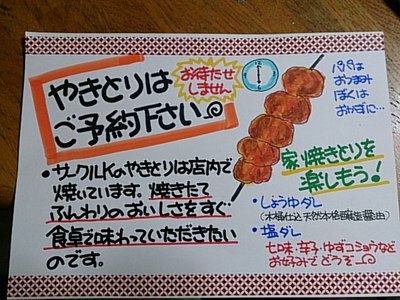 やきとりは
ご予約下さい
お待たせ
しません
パパは
おつまみ
ぼくは
おかずに…
・サークルKのやきとりは店内で
焼いています。焼きたて
ふんわりのおいしさをすぐ
食卓で味わっていただきたい
のです。
家焼きとりを
楽しもう!
・しょうゆダレ
・塩ダレ
七味、辛子、ゆずコショウなど
お好みでどうぞ